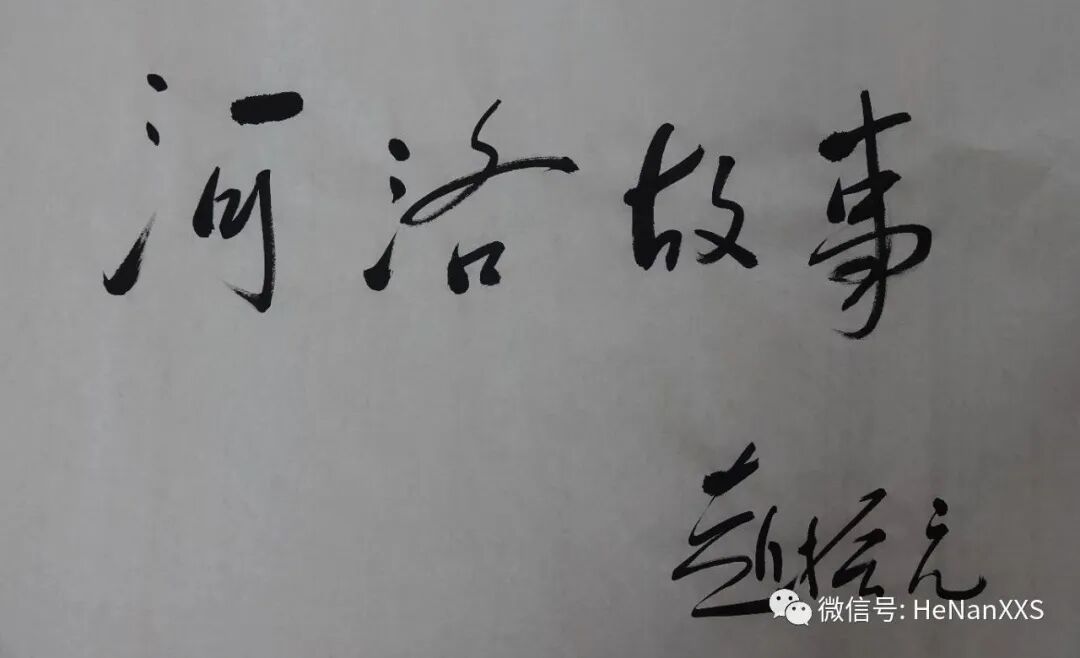 河洛故事
赵拴元
微信号: HeNanXXS